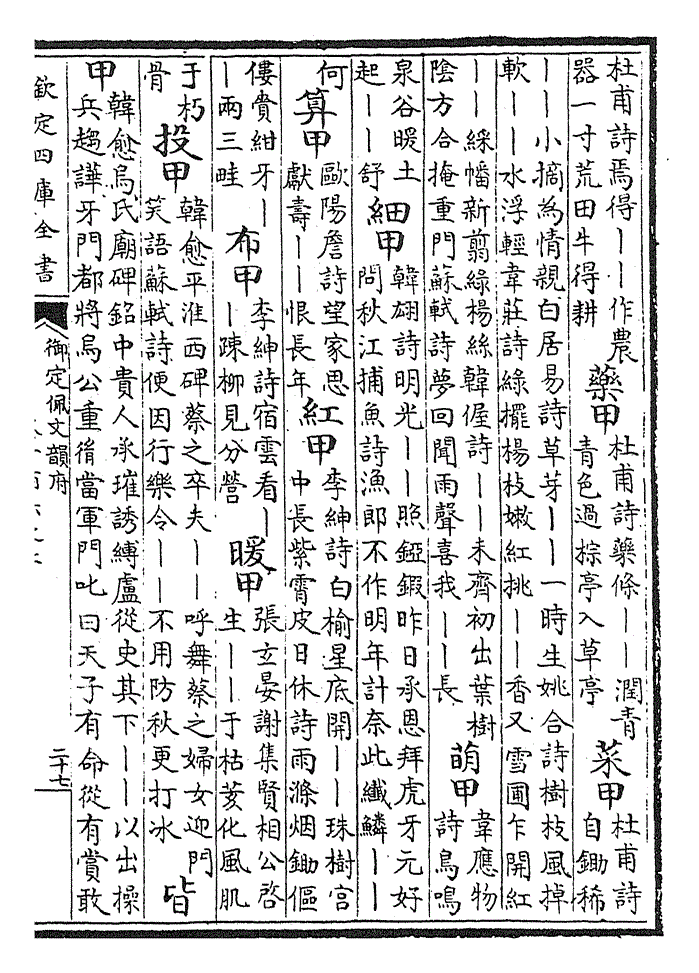 杜甫詩焉得｜｜作農
器一寸荒田牛得耕
藥甲
杜甫詩藥條｜｜潤青
青色過棕亭入草亭
菜甲
杜甫詩
自鋤稀
｜｜小摘為情親白居易詩草芽｜｜一時生姚合詩樹枝風掉
軟｜｜水浮輕韋莊詩綠擺楊枝嫩紅挑｜｜香又雪圃乍開紅
｜｜綵幡新翦綠楊絲韓偓詩｜｜未齊初出葉樹
陰方合掩重門蘇軾詩夢回聞雨聲喜我｜｜長
萌甲
韋應物
詩鳥鳴
泉谷暖土
起｜｜舒
細甲
韓翃詩明光｜｜照錏鍜昨日承恩拜虎牙元好
問秋江捕魚詩漁郎不作明年計奈此纖鱗｜｜
何
算甲
歐陽詹詩望家思
獻壽｜｜恨長年
紅甲
李紳詩白榆星底開｜｜珠樹宫
中長紫霄皮日休詩雨滌烟鋤傴
僂賫紺牙｜
｜兩三畦
布甲
李紳詩宿雲看｜
｜疎柳見分營
暖甲
張玄晏謝集賢相公啓
生｜｜于枯荄化風肌
于朽
骨
投甲
韓愈平淮西碑蔡之卒夫｜｜呼舞蔡之婦女迎門
笑語蘇軾詩便因行樂令｜｜不用防秋更打冰
皆
甲
韓愈烏氏廟碑銘中貴人承璀誘縛盧從史其下｜｜以出操
兵趨譁牙門都將烏公重胤當軍門叱曰天子有命從有賞敢
欽定四庫全書
御定佩文韻府
二十七